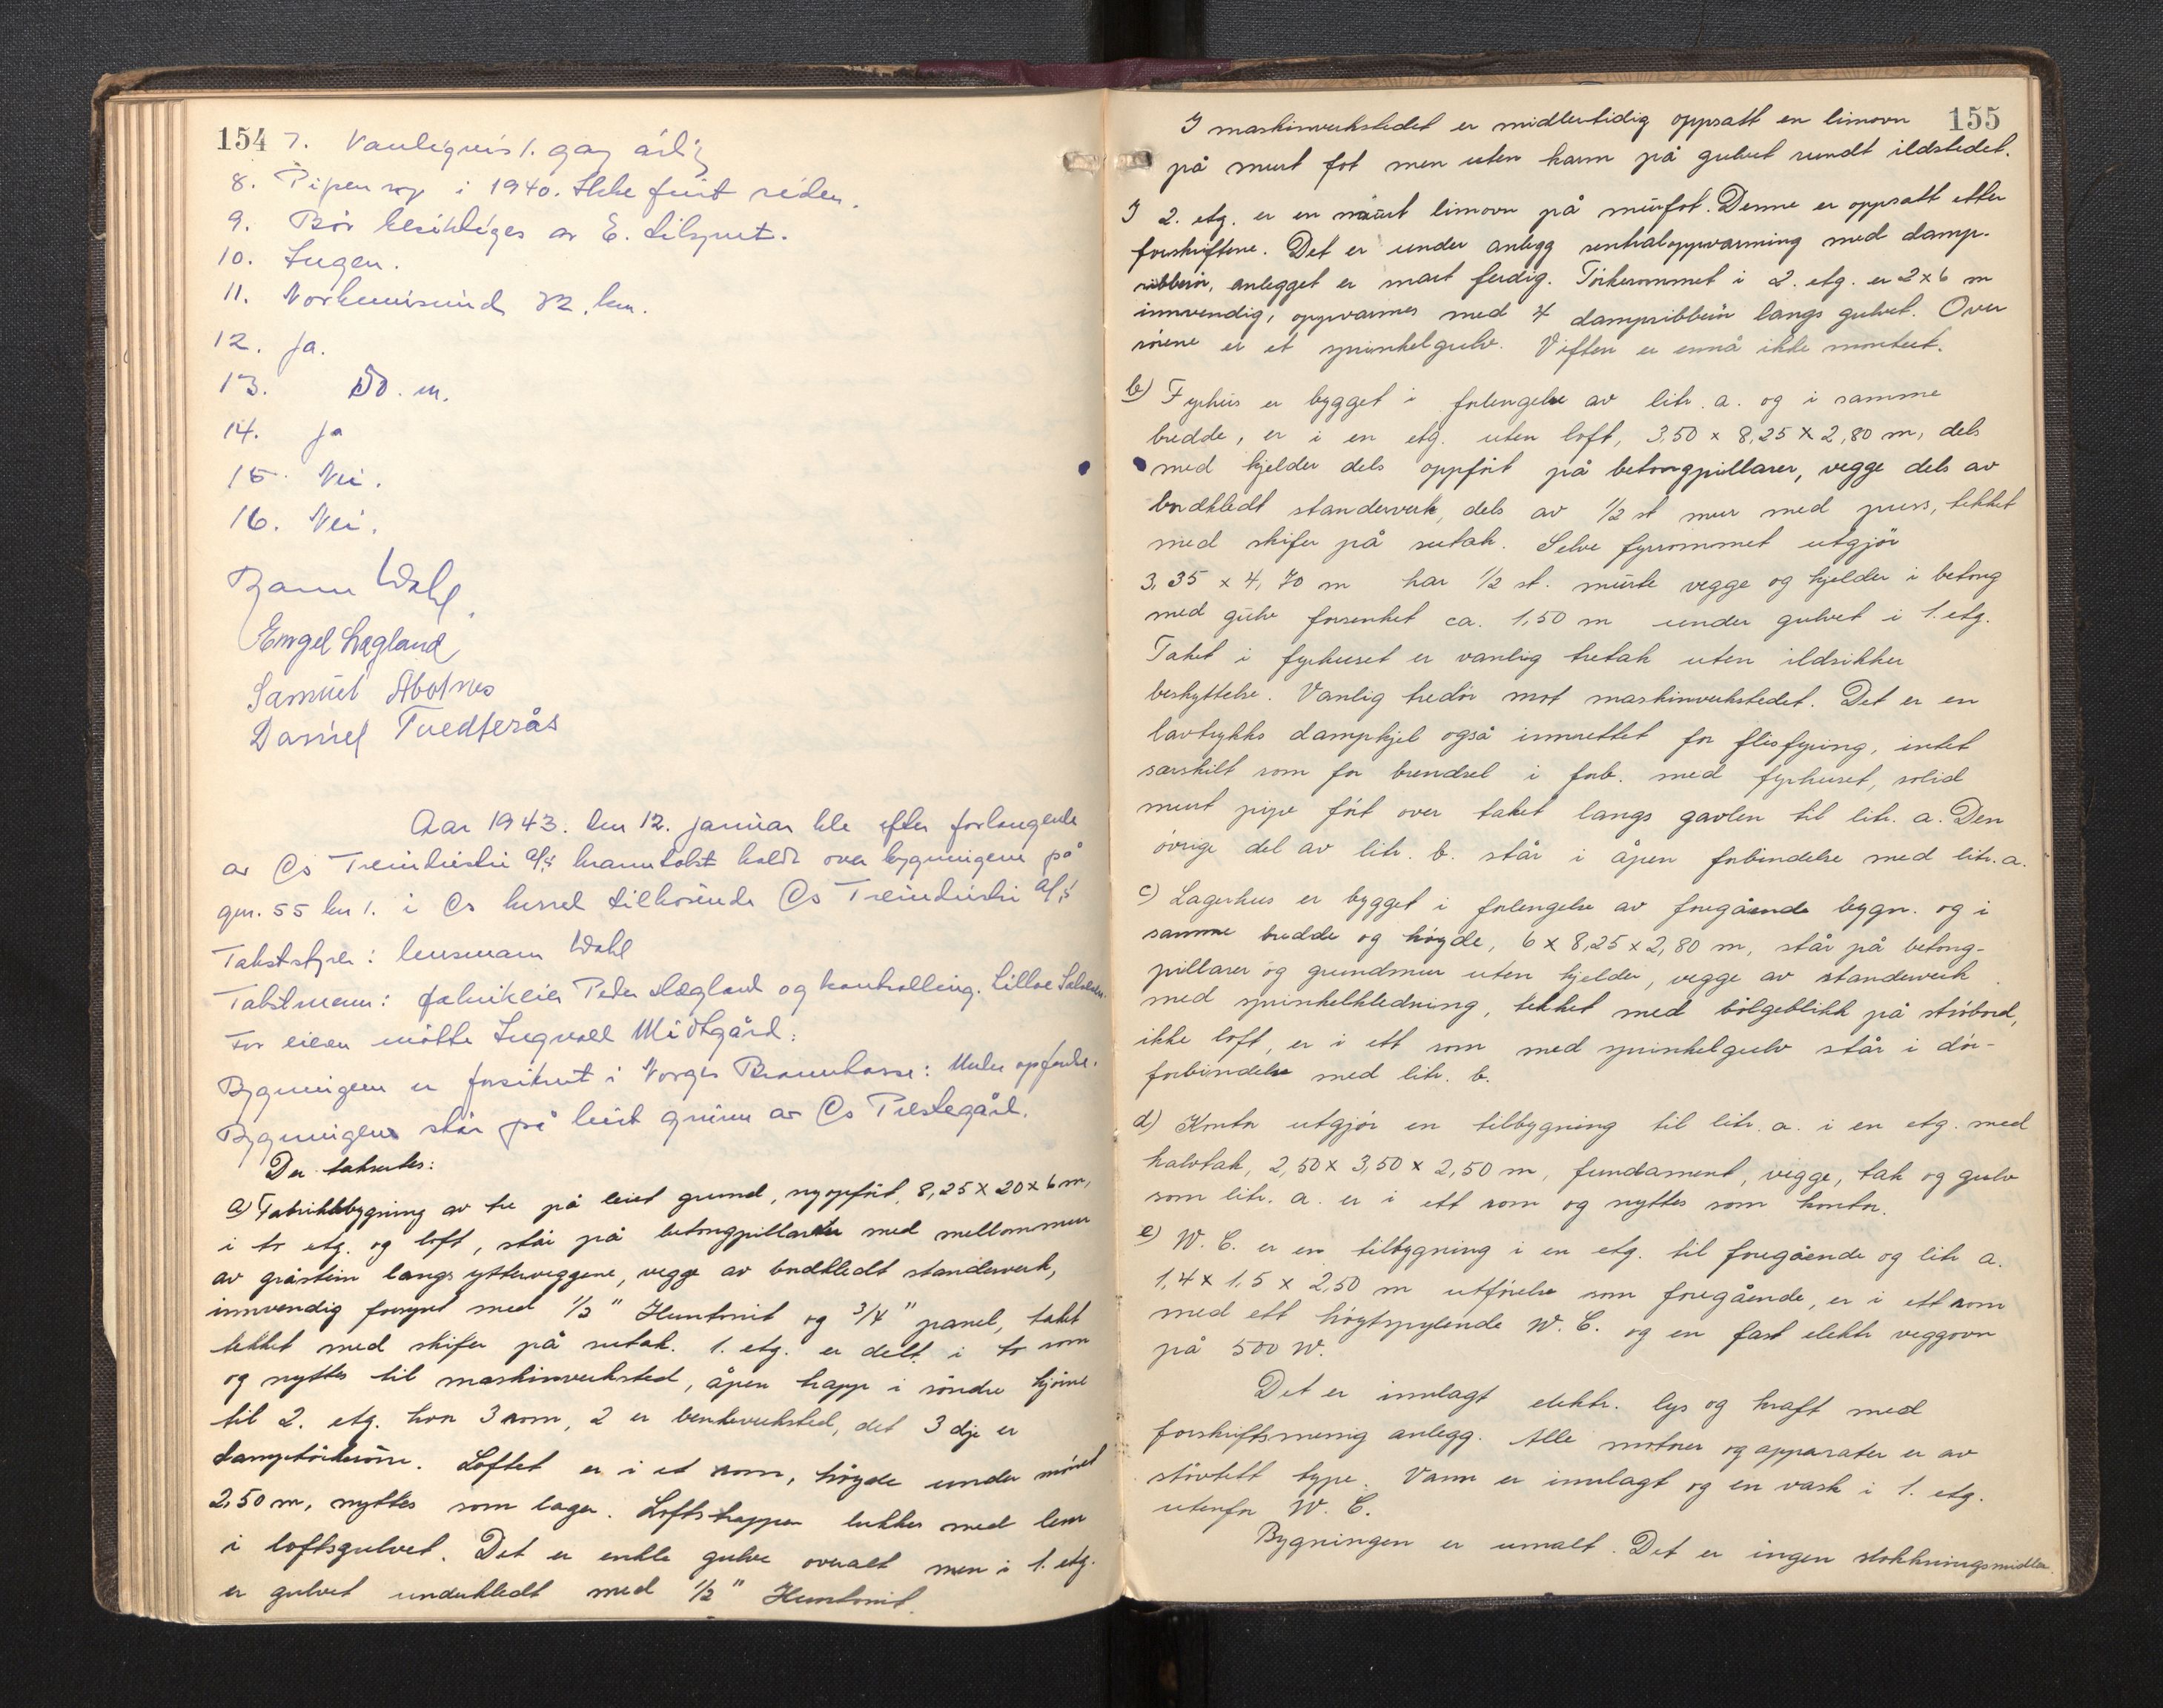 154
7. Vanligvis 1. gang årlig
8. Pipen rep i 1940. Ikke fyrt siden.
9. Bör besiktiges av E. tilsynet.
10. Ingen.
11. Norheimsund 32. km.
12. Ja.
13. 50. m.
14. Ja
15. Nei.
16. Nei.
Wahl.
Engel Lægland
Samuel Aboknes
Daniel Tvedterås
Aar 1943. den 12. januar ble efter forlangende
av Os Treindustri A/S branntakst holdt over bygningene på
gnr. 55 bnr 1. i Os herred tilhörende Os Treindustri A/S
Takststyrer: lensmann Wahl
Takstmenn: fabrikkeier Peder Lægland og kontrolling. Lilloe Salvesen.
For eieren mötte Ingvald Midtgård.
Bygningen er forsikret i Norges Brannkasse: Under opförelse.
Bygningene står på leiet grunn av Os Prestegård.
Der takseres:
a) Fabrikkbygning av tre på leiet grund, nyoppfört, 8,25 x 20 x 6 m,
i to etg. og loft, står på betongpillarer med mellommur
av gråstein langs ytterveggene, vegge av bordkledt standerverk,
innvendig forsynt med 1/2" Huntonit og 3/4" panel, taket
tekket med skifer på sutak. 1. etg. er delt i to rom
og nyttes til maskinverksted, åpen trapp i söndre hjörne
til 2. etg. hvor 3 rom, 2 er benkeverksted, det 3 dje er
damptörkerom. Loftet er i et rom, høyde under mönet
2,50 m, nyttes som lager. Loftstrappen lukkes med lem
i loftsgulvet. Det er enkle gulve overalt men i 1. etg.
er gulvet underkledt med 1/2" Huntonit.
155
I maskinverkstedet er midlertidig oppsatt en limovn
på murt fot men uten karm på gulvet rundt ildstedet.
I 2. etg. er en murt limovn på murfot. Denne er oppsatt etter
forskriftene. Det er under anlegg sentraloppvarming med damp-
ribberör, anlegget er snart ferdig. Törkerommet i 2. etg. er 2 x 6 m
innvendig, oppvarmes med 4 dampribberör langs gulvet. Over
rörene er et sprinkelgulv. Viften er ennå ikke montert.
b) Fyrhus er bygget i forlengelse av litr. a. og i samme
bredde, er i en etg. uten loft, 3,50 x 8,25 x 2,80 m, dels
med kjelder dels oppfört på betongpillarer, vegge dels av
bordkledt standerverk, dels av 1/2 st mur med puss, tekket
med skifer på sutak. Selve fyrrommet utgjör
3,35 x 4,70 m har 1/2 st. murte vegge og kjelder i betong
med gulv forsenket ca. 1,50 m under gulvet i 1. etg.
Taket i fyrhuset er vanlig tretak uten ildsikker
beskyttelse. Vanlig tredör mot maskinverkstedet. Det er en
lavtrykks dampkjel også innrettet for flisfyring, intet
særskilt rom for brendsel i forb. med fyrhuset, solid
murt pipe fört over taket langs gavlen til litr. a. Den
övrige del av litr. b. står i åpen forbindelse med litr. a.
c) Lagerhus er bygget i forlengelse av foregående bygn. og i
samme bredde og høyde, 6 x 8,25 x 2,80 m, står på betong-
pillarer og grundmur uten kjelder, vegge av standerverk
med sprinkelkledning, tekket med bölgeblikk på ströbord,
ikke loft, er i ett rom med sprinkelgulv står i dör-
forbindelse med litr. b.
d) Kontor utgjör en tilbygning til litr. a. i en etg. med
halvtak, 2,50 x 3,50 x 2,50 m, fundament, vegge, tak og gulv
som litr. a. er i ett rom og nyttes som kontor.
e) W. C. er en tilbygning i en etg. til foregående og litr a.
1,4 x 1,5 x 2,50 m utförelse som foregående, er i ett rom
med ett høytspylende W. C. og en fast elektr veggovn
på 500 W.
Det er innlagt elektr. lys og kraft med
forskriftsmessig anlegg. Alle motorer og apparater er av
stövtett type. Vann er innlagt og en vask i 1. etg.
utenfor W. C.
Bygningen er umalt. Det er ingen slokkningsmidler.